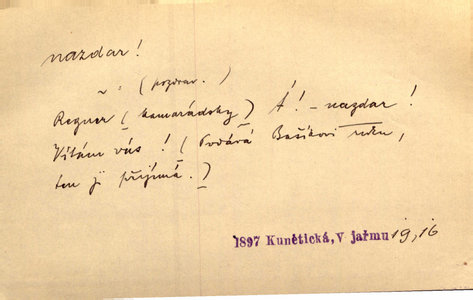 nazdar!
~: (pozdrav.)
Regner (kamarádsky) Á! – nazdar!
Vítám vás! (Podává Bašikovi ruku,
ten ji přijímá.)
1897 Kunětická, V jařmu 19, 16